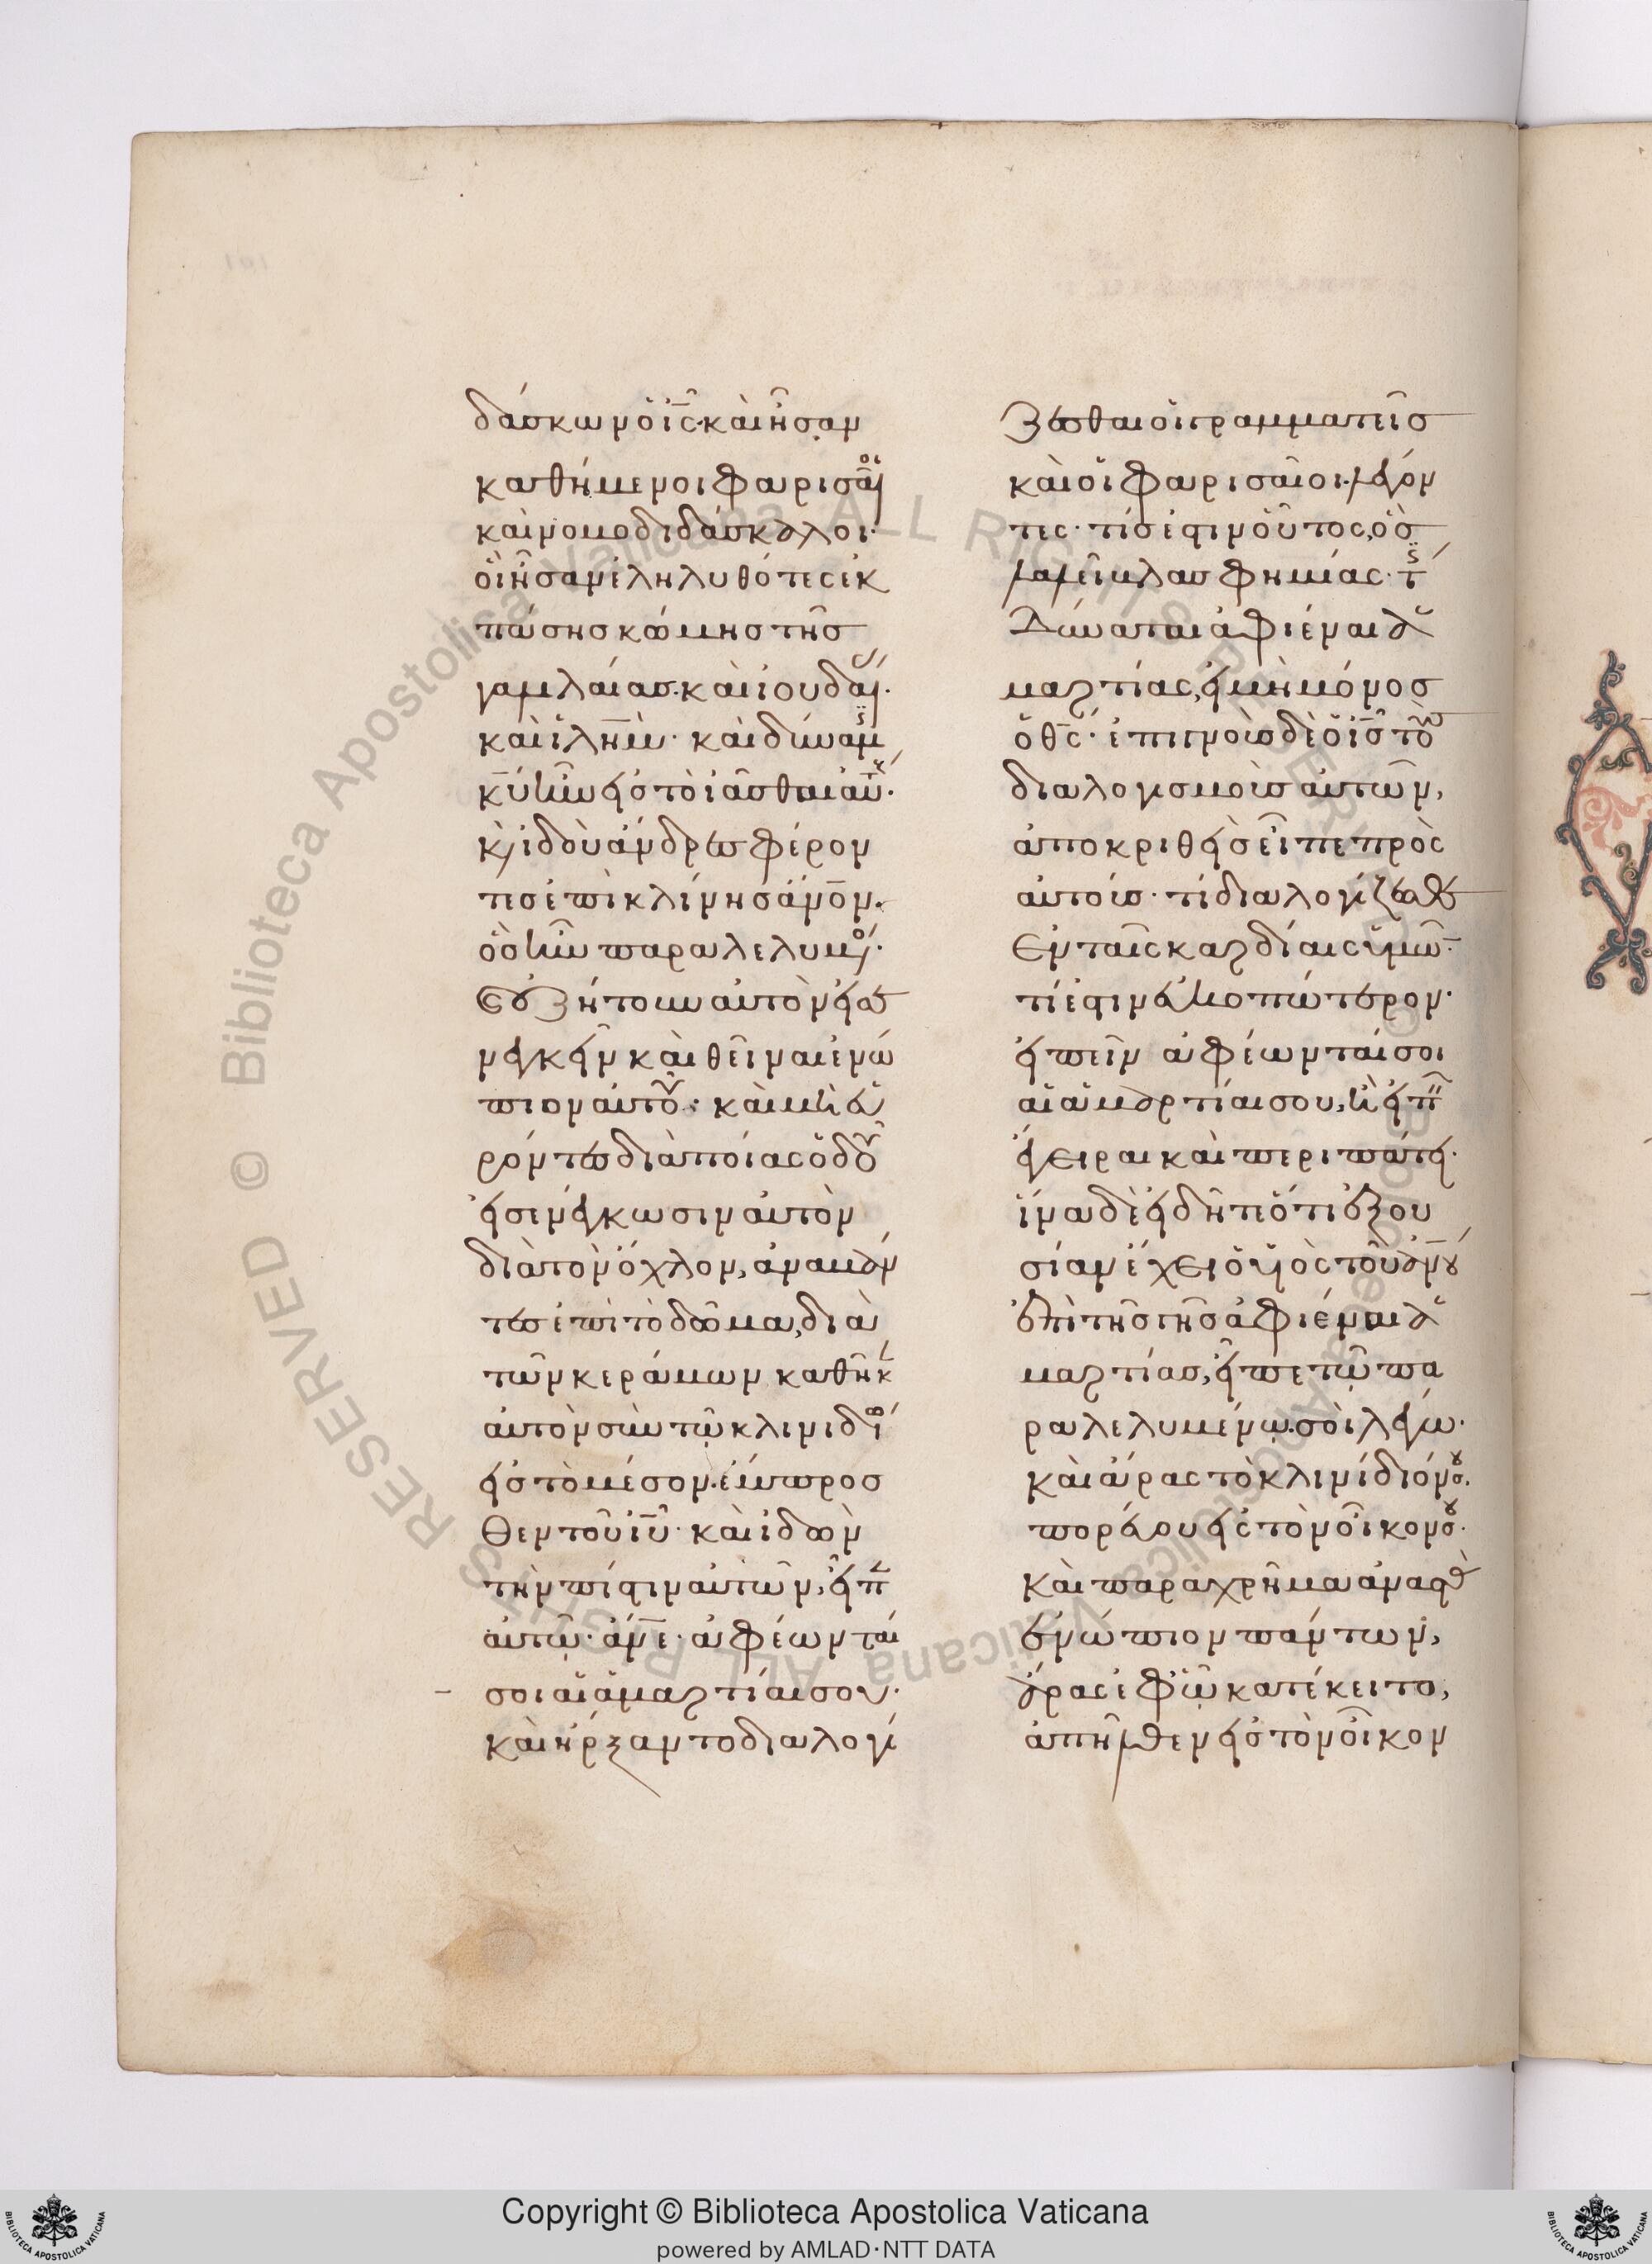 δάσκων ὁ ἰς· καὶ ἦσαν
καθήμενοι φαρισαῖοι
καὶ νομοδιδάσκαλοι·
οἳ ἦσαν ἐληλυθότες ἐκ
πάσης κώμης τῆς
γαλιλαίας· καὶ ἰουδαί.
καὶ ἰλημ· καὶ δύναμ
κυ ἦν εἰς τὸ ἰᾶσθαι αὐτ.
κ ἰδοὺ ἄνδρες φέρον
τες ἐπὶ κλίνης ἄνον.
ὃς ἦν παραλελυμ·
ἐζήτουν αὐτὸν εἰσε
νεγκεῖν καὶ θεῖναι ἐνώ
πιον αὐτοῦ· καὶ μὴ εὑ
ρόντες διὰ ποίας ὁδοῦ
εἰσενέγκωσιν αὐτὸν
διὰ τὸν ὄχλον, ἀναβάν
τες ἐπὶ τὸ δῶμα, διὰ
τῶν κεράμων καθῆκ
αὐτὸν σὺν τῷ κλινιδί
εἰς τὸ μέσον ἔμπροσ
θεν τοῦ ἰυ· καὶ ἰδὼν
τὴν πίστιν αὐτῶν, εἶπ
αὐτῷ· ἄνε· ἀφέωνταί
σοι αἱ ἁμαρτίαι σου·
καὶ ἤρξαντο διαλογί
ζεσθαι οἱ γραμματεῖς
καὶ οἱ φαρισαῖοι λέγον
τες· τίς ἐστιν οὗτος, ὃς
λαλεῖ βλασφημίας· τ
δύναται ἀφιέναι ἁ
μαρτίας, εἰ μὴ μόνος
ὁ θς· ἐπιγνοὺς δὲ ὁ ἰς τοὺ
διαλογισμοὺς αὐτῶν,
ἀποκριθεὶς εἶπε πρὸς
αὐτούς· τί διαλογίζεσθε
ἐν ταῖς καρδίαις ὑμῶ·
τί ἐστιν εὐκοπώτερον·
εἰπεῖν ἀφέωνταί σοι
αἱ ἁμαρτίαι σου, ἢ εἰπεῖ
ἔγειραι καὶ περιπάτει·
ἵνα δὲ εἰδῆτε ὅτι ἐξου
σίαν ἔχει ὁ υἱὸς τοῦ ἀνου
ἐπὶ τῆς γῆς ἀφιέναι ἁ
μαρτίας, εἶπε τῷ πα
ραλελυμένῳ. σοὶ λέγω·
καὶ ἄρας τὸ κλινίδιόν σου,
πορεύου εἰς τὸν οἶκόν σου·
καὶ παραχρῆμα ἀναστὰ
ἐνώπιον πάντων,
ἄρας ἐφ ᾧ κατέκειτο,
ἀπῆλθεν εἰς τὸν οἶκον
Copyright © Biblioteca Apostolica Vaticana
powered by AMLAD·NTT DATA